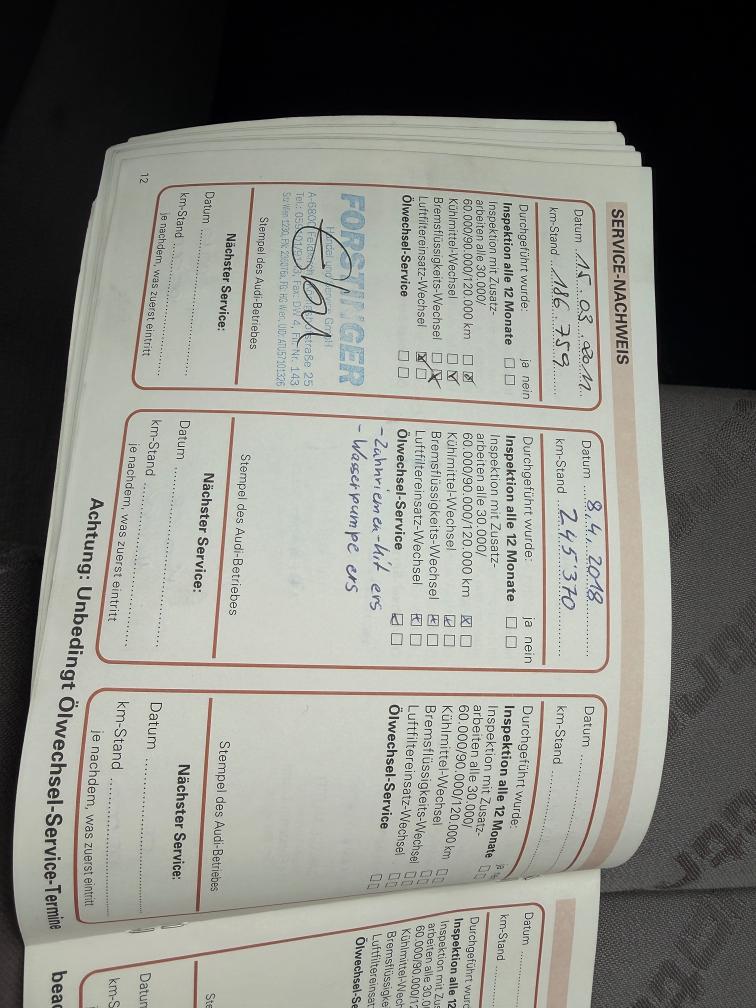 SERVICE-NACHWEIS
Datum 15.03.2011
km-Stand 186 759
Durchgeführt wurde: ja nein
Inspektion alle 12 Monate
Inspektion mit Zusatz-
arbeiten alle 30.000/
60.000/90.000/120.000 km
Kühlmittel-Wechsel
Bremsflüssigkeits-Wechsel
Luftfiltereinsatz-Wechsel
Ölwechsel-Service
FORSTINGER
Stempel des Audi-Betriebes
Nächster Service:
Datum
km-Stand
je nachdem, was zuerst eintritt
12
Datum 8.4.2018
km-Stand 245 370
Durchgeführt wurde: ja nein
Inspektion alle 12 Monate
Inspektion mit Zusatz-
arbeiten alle 30.000/
60.000/90.000/120.000 km
Kühlmittel-Wechsel
Bremsflüssigkeits-Wechsel
Luftfiltereinsatz-Wechsel
Ölwechsel-Service
- Zahnriemen-kit ers
- Wasserpumpe ers
Stempel des Audi-Betriebes
Nächster Service:
Datum
km-Stand
je nachdem, was zuerst eintritt
Datum
km-Stand
Durchgeführt wurde:
Inspektion alle 12 Monate
Inspektion mit Zusatz-
arbeiten alle 30.000/
60.000/90.000/120.000 km
Kühlmittel-Wechsel
Bremsflüssigkeits-Wechsel
Luftfiltereinsatz-Wechsel
Ölwechsel-Service
Stempel des Audi-Betriebes
Nächster Service:
Datum
km-Stand
je nachdem, was zuerst eintritt
Achtung: Unbedingt Ölwechsel-Service-Termine
Datum
km-Stand
Durchgeführt
Inspektion alle 12
Inspektion mit
arbeiten alle 30
Kühlmittel-We
Bremsflüssigke
Luftfiltereinsat
Ölwechsel-Se